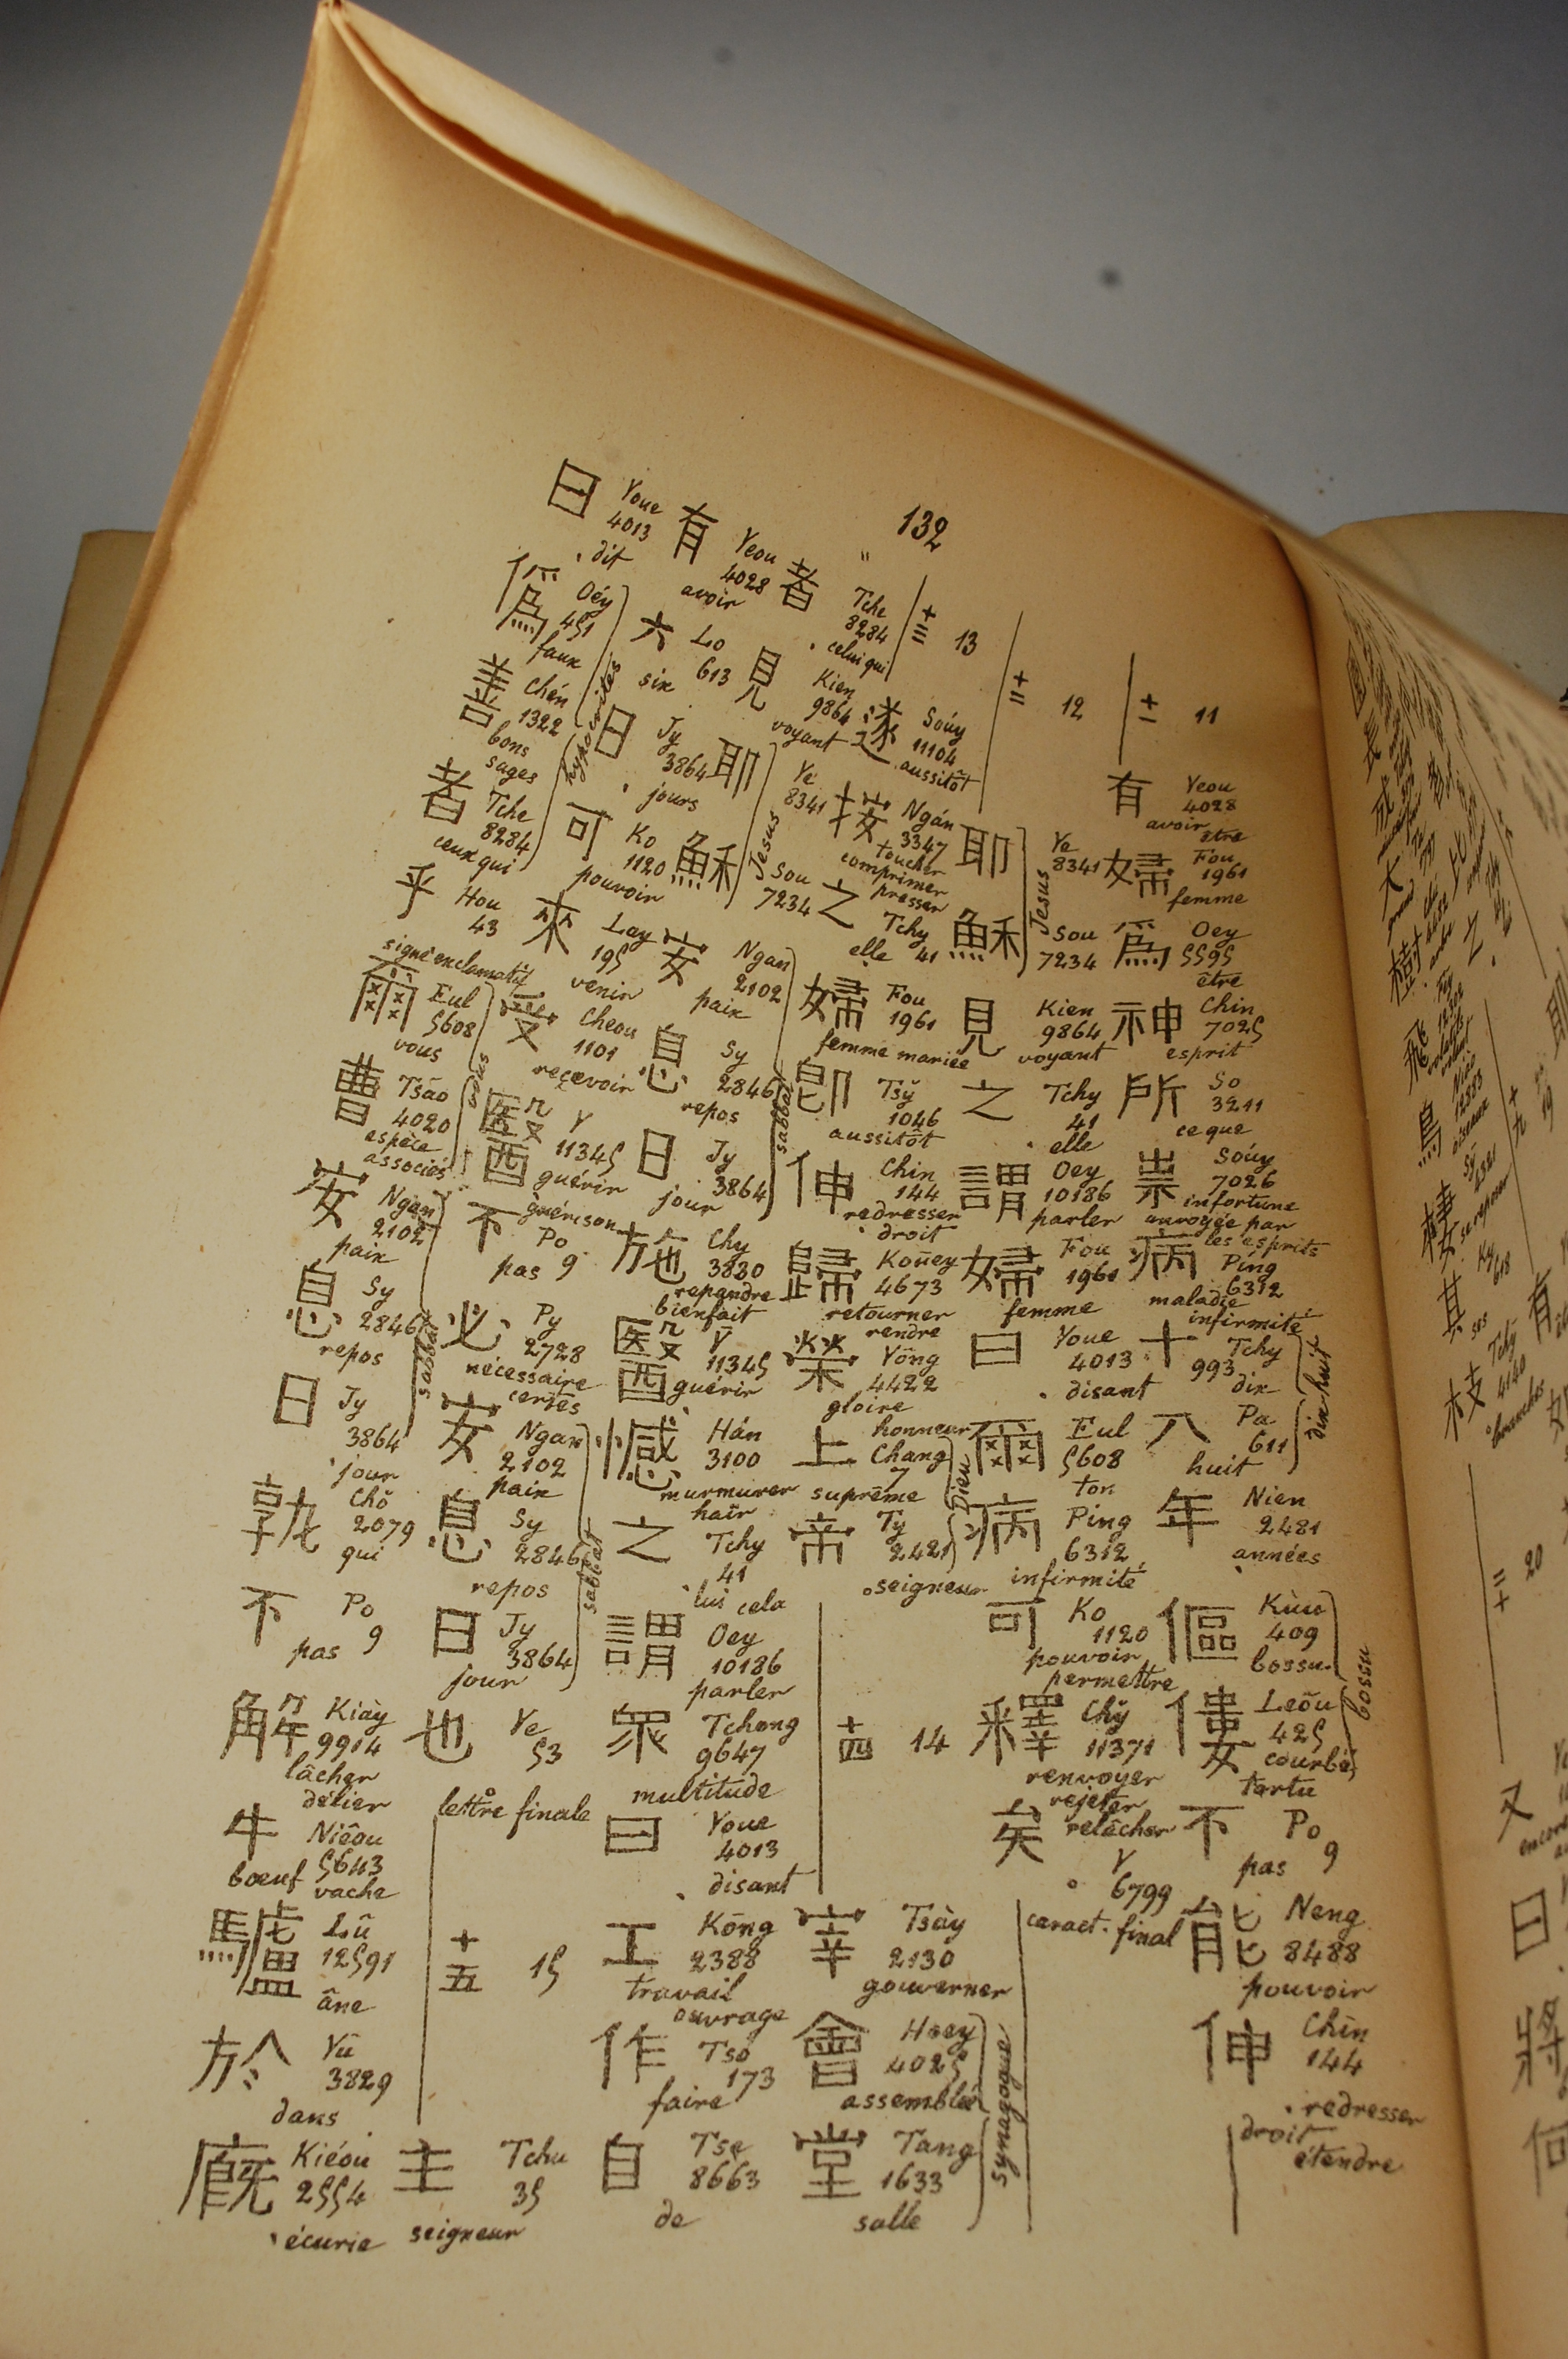 132
十一 11
有 Yeou
4028
avoir
être
婦 Fou
1961
femme
爲 Oey
5595
être
神 Chin
7025
esprit
所 So
3211
ce que
祟 Soúy
7026
infortune
envoyée par
les esprits
病 Ping
6312
maladie
infirmité
十 Tchy
993
dix
八 Pa
611
huit
dix huit
年 Nien
2481
années
傴 Kùu
409
bossu
僂 Leôu
425
courbé
tortu
bossu
不 Po
9
pas
能 Neng
8488
pouvoir
伸 Chin
144
redresser
droit
étendre
十二 12
耶 Ye
8341
穌 Sou
7234
Jesus
見 Kien
9864
voyant
之 Tchy
41
elle
謂 Oey
10186
parler
婦 Fou
1961
femme
曰 Youe
4013
disant
爾 Eul
5608
ton
病 Ping
6312
infirmité
可 Ko
1120
pouvoir
permettre
釋 Chy
11371
renvoyer
rejeter
relâcher
矣 Y
6799
caract. final
十三 13
遂 Soúy
11104
aussitôt
按 Ngán
3347
toucher
comprimer
presser
之 Tchy
41
elle
婦 Fou
1961
femme mariée
卽 Tsy
1046
aussitôt
伸 Chin
144
redresser
droit
歸 Kouey
4673
retourner
rendre
榮 Yông
4422
gloire
honneur
上 Chang
7
suprême
帝 Ty
2421
seigneur
Dieu
十四 14
宰 Tsày
2130
gouverner
會 Hoey
4025
assemblée
堂 Tang
1633
salle
synagogue
者 Tche
8284
celui qui
見 Kien
9864
voyant
耶 Ye
8341
穌 Sou
7234
Jesus
安 Ngan
2102
paix
息 Sy
2846
repos
日 Jy
3864
jour
sabbat
施 Chy
3830
repandre
bienfait
醫 Y
11345
guérir
憾 Hán
3100
murmurer
haïr
之 Tchy
41
lui cela
謂 Oey
10186
parler
衆 Tchong
9647
multitude
曰 Youe
4013
disant
工 Kōng
2388
travail
ouvrage
作 Tso
173
faire
自 Tse
8663
de
有 Yeou
4028
avoir
六 Lo
613
six
日 Jy
3864
jours
可 Ko
1120
pouvoir
來 Lay
195
venir
受 Cheou
1101
recevoir
醫 Y
11345
guérir
guérison
不 Po
9
pas
必 Py
2728
nécessaire
certes
安 Ngan
2102
paix
息 Sy
2846
repos
日 Jy
3864
jour
sabbat
也 Ye
53
lettre finale
十五 15
主 Tchu
35
seigneur
曰 Youe
4013
dit
僞 Oéy
451
faux
善 Chén
1322
bons
sages
者 Tche
8284
ceux qui
hypocrites
乎 Hou
43
signe exclamatif
爾 Eul
5608
vous
曹 Tsāo
4020
espèce
associés
安 Ngan
2102
paix
息 Sy
2846
repos
日 Jy
3864
jour
sabbat
孰 Chŏ
2079
qui
不 Po
9
pas
解 Kiày
9914
lâcher
délier
牛 Niêou
5643
boeuf
vache
驢 Lû
12591
âne
於 Yū
3829
dans
廐 Kiéou
2554
écurie
長
成
大
樹
飛
鳥
棲
其
枝
4140
branches
十九 19
二十 20
又
曰
將
何